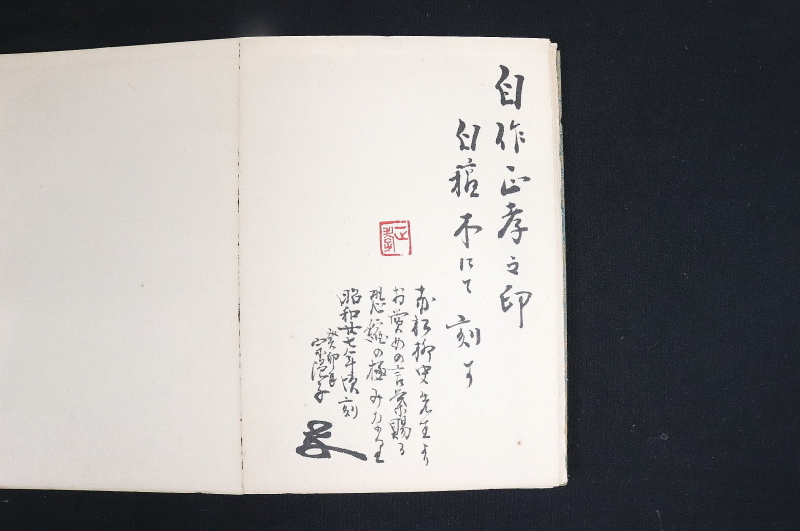 自作正孝之印
自稲木にて刻す
正孝
赤松柳史先生より
お賞めの言葉賜る
恐縮の極みなり
昭和廿七年頃刻
癸卯